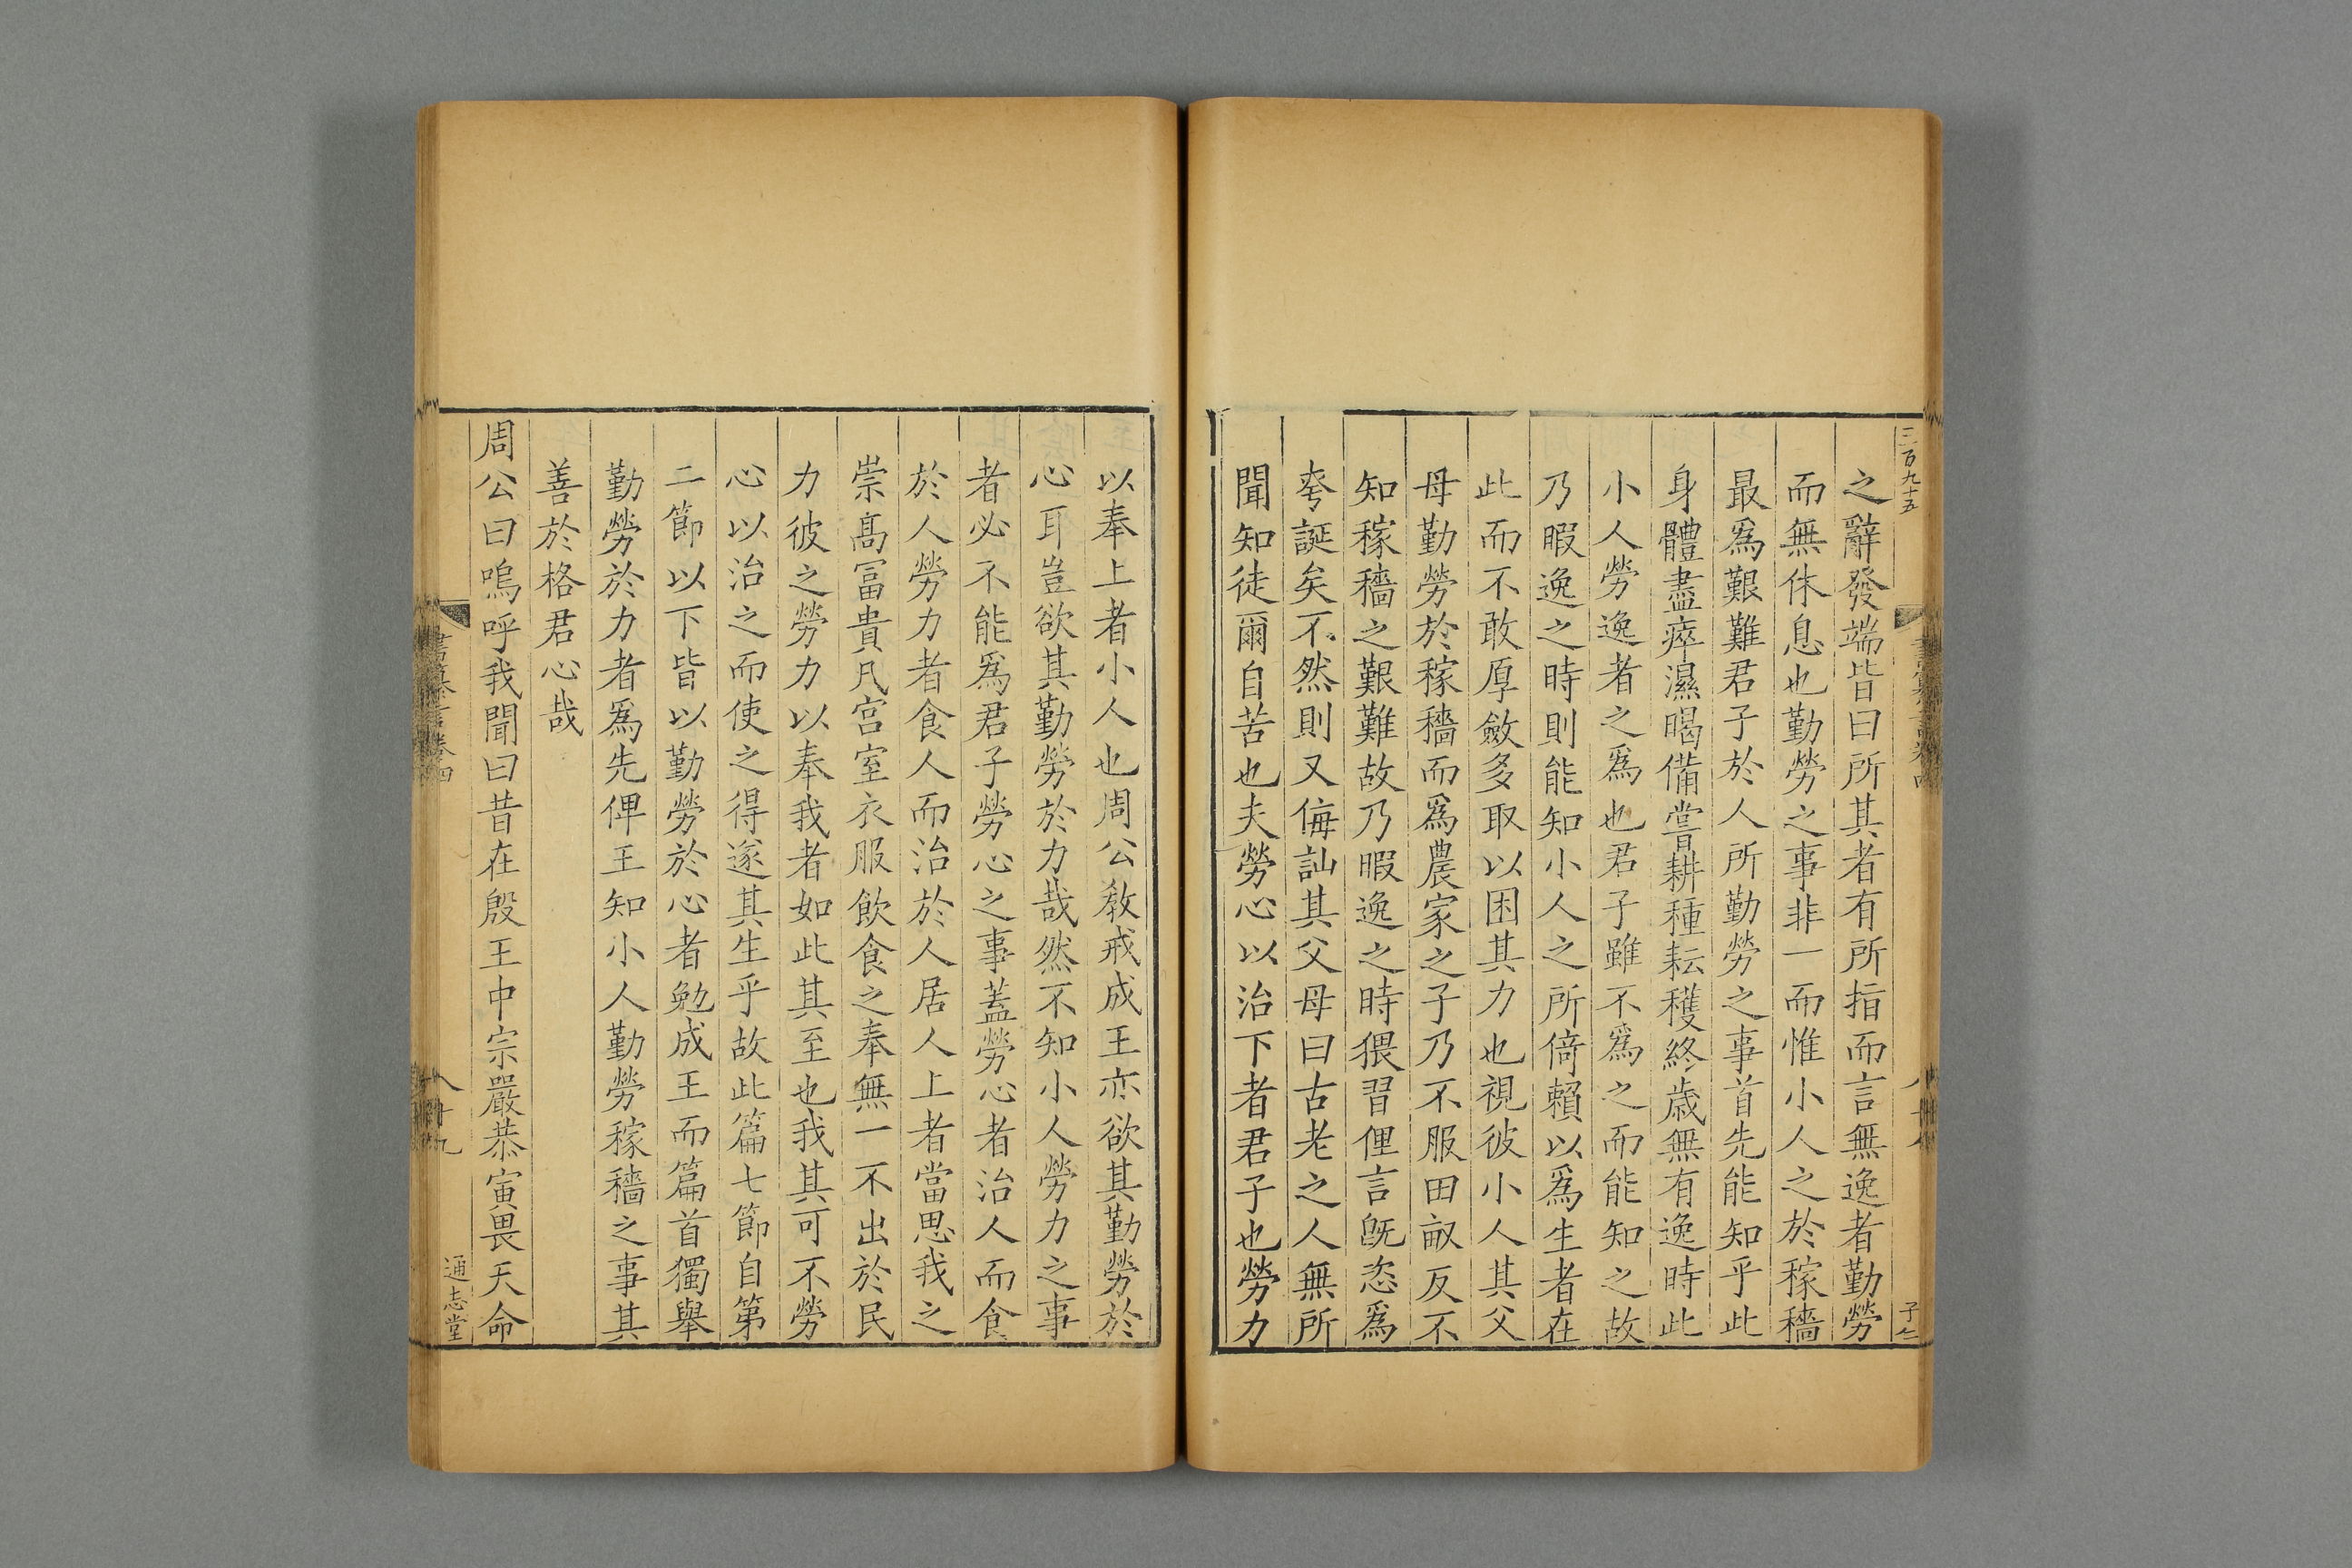 三百九十五
之辭發端皆曰所其者有所指而言無逸者勤勞
而無休息也勤勞之事非一而惟小人之於稼穡
最爲艱難君子於人所勤勞之事首先能知乎此
身體盡瘁濕暍備嘗耕種耘穫終歳無有逸時此
小人勞逸者之爲也君子雖不爲之而能知之故
乃暇逸之時則能知小人之所倚賴以爲生者在
此而不敢厚斂多取以困其力也視彼小人其父
母勤勞於稼穡而爲農家之子乃不服田畝反不
知稼穡之艱難故乃暇逸之時猥習俚言旣恣爲
夸誕矣不然則又侮訕其父母曰古老之人無所
聞知徒爾自苦也夫勞心以治下者君子也勞力
以奉上者小人也周公敎戒成王亦欲其勤勞於
心耳豈欲其勤勞於力哉然不知小人勞力之事
者必不能爲君子勞心之事蓋勞心者治人而食
於人勞力者食人而治於人居人上者當思我之
崇髙冨貴凡宫室衣服飲食之奉無一不出於民
力彼之勞力以奉我者如此其至也我其可不勞
心以治之而使之得遂其生乎故此篇七節自第
二節以下皆以勤勞於心者勉成王而篇首獨舉
勤勞於力者爲先俾王知小人勤勞稼穡之事其
善於格君心哉
周公曰嗚呼我聞曰昔在殷王中宗嚴恭寅畏天命
書纂言卷四
通志堂